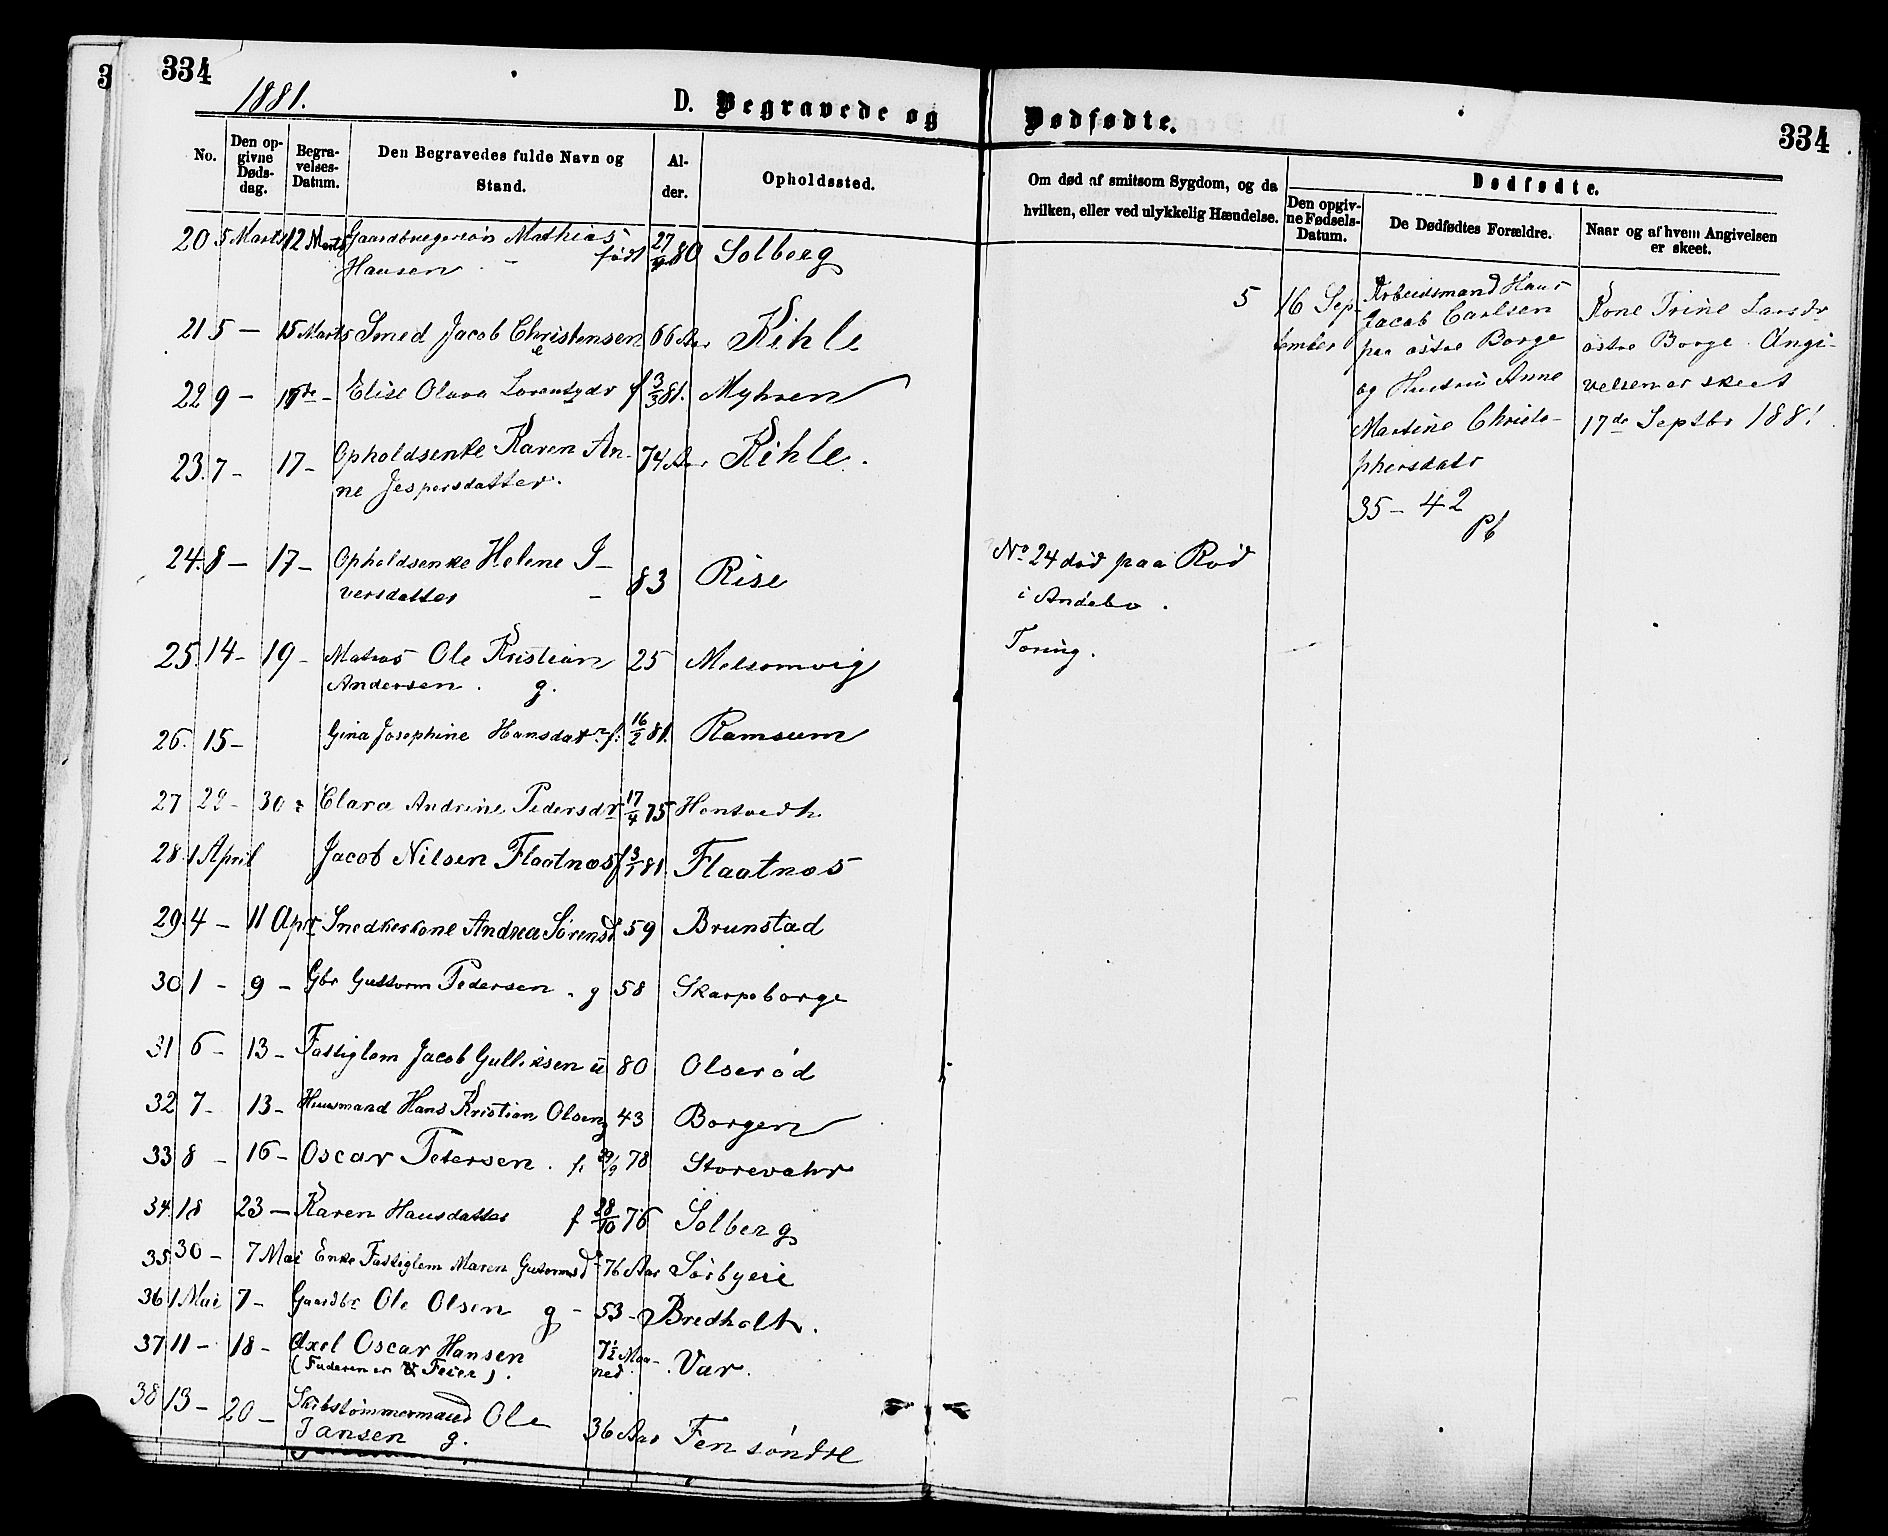 334
1881.
D. Begravede og Dødfødte.
334
No.
Den op-
givne
Døds-
dag.
Begra-
velses-
Datum.
Den Begravedes fulde Navn og
Stand.
Al-
der.
Opholdssted.
Om død af smitsom Sygdom, og da
hvilken, eller ved ulykkelig Hændelse.
Dødfødte.
Den opgiv-
ne Fødsels-
Datum.
De Dødfødtes Forældre.
Naar og af hvem Angivelsen
er skeet.
20 5 Marts 12 Marts Gaardbrugersøn Mathias født 27/ 80 Solberg
Hansen
21 5 — 15 Marts Smed Jacob Christensen 66 Aar Kihle
e
22 9 — Elise Olava Lorentzdr f 3/3 81. Myhren
23. 7 — 17 — Opholdsenke Karen An- 74 Aar Kihle.
ne Jespersdatter.
24. 8 — 17 — Opholdsenke Helene I- 83 Rise
versdatter
25. 14 — 19 — Matros Ole Kristian 25 Melsomvig
Andersen. g.
26. 15 — Gina Josephine Hansdatr f. 16/2 81. Ramsum
27 29 — 30 Clara Andrine Pedersdr 17/4 75 Hontvedt
28. 1 April Jacob Nilsen Flaatnes f 3/1 81 Flaatnes
29. 4 — 11 Apr Snedkerkone Andrea Sørensd 59 Brunstad
30 1 — 9 — Gbr Guttorm Pedersen g 58 Skarpeborge
31 6 — 13 — Fattiglem Jacob Gulliksen u 80 Olserød
32 7 — 13 — Huusmand Hans Kristian Olsen g 43 Borgen
33 8 — 16 — Oscar Petersen. f. /9 78 Storevahr
34. 18 23 — Karen Hansdatter f 28/10 76 Solberg
35 30 — 7 Mai Enke Fattiglem Maren Guttormsd 76 Aar Sørbyeie
36 1 Mai 7 — Gaardbr Ole Olsen g — 53 — Bredholt.
37 11 — 18 — Axel Oscar Hansen 7½ Maa- Var.
(Faderen er Feier). ned
38 13 — 20 — Skibstømmermand Ole 36 Aar Fen søndre
Jansen g.
No 24 død paa Rød
i Andebo.
Tæring.
5 16 Sep-
tember
Arbeidsmand Hans
Jacob Carlsen
paa østre Borge
og Hustru Anne
Martine Christo-
phersdatr
35 — 42
Pb
Kone Trine Larsdr
østre Borge. Angi-
velsen er skeet
17de Septbr 1881